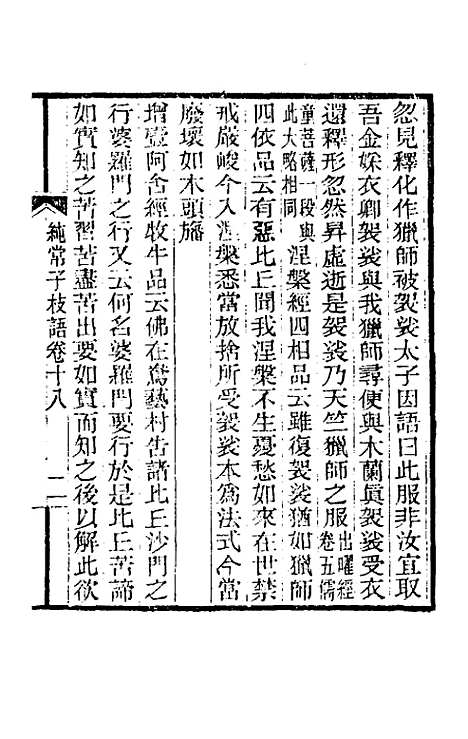 忽見釋化作獵師被袈裟太子因語曰此服非汝宜取
吾金綵衣卿袈裟與我獵師尋便與木蘭眞袈裟受衣
還釋形忽然昇虛逝是袈裟乃天竺獵師之服出曜經卷五儒
童菩薩一段與此大略相同涅槃經四相品云雖復袈裟猶如獵師
四依品云有惡比丘聞我涅槃不生憂愁如來在世禁
戒嚴峻今入涅槃悉當放捨所受袈裟本爲法式今當
廢壞如木頭旛
增壹阿含經牧牛品云佛在鴦藝村告諸比丘沙門之
行婆羅門之行又云何名婆羅門要行於是比丘苦諦
如實知之苦習苦盡苦出要如實而知之後以解此欲
純常子枝語卷十八 二